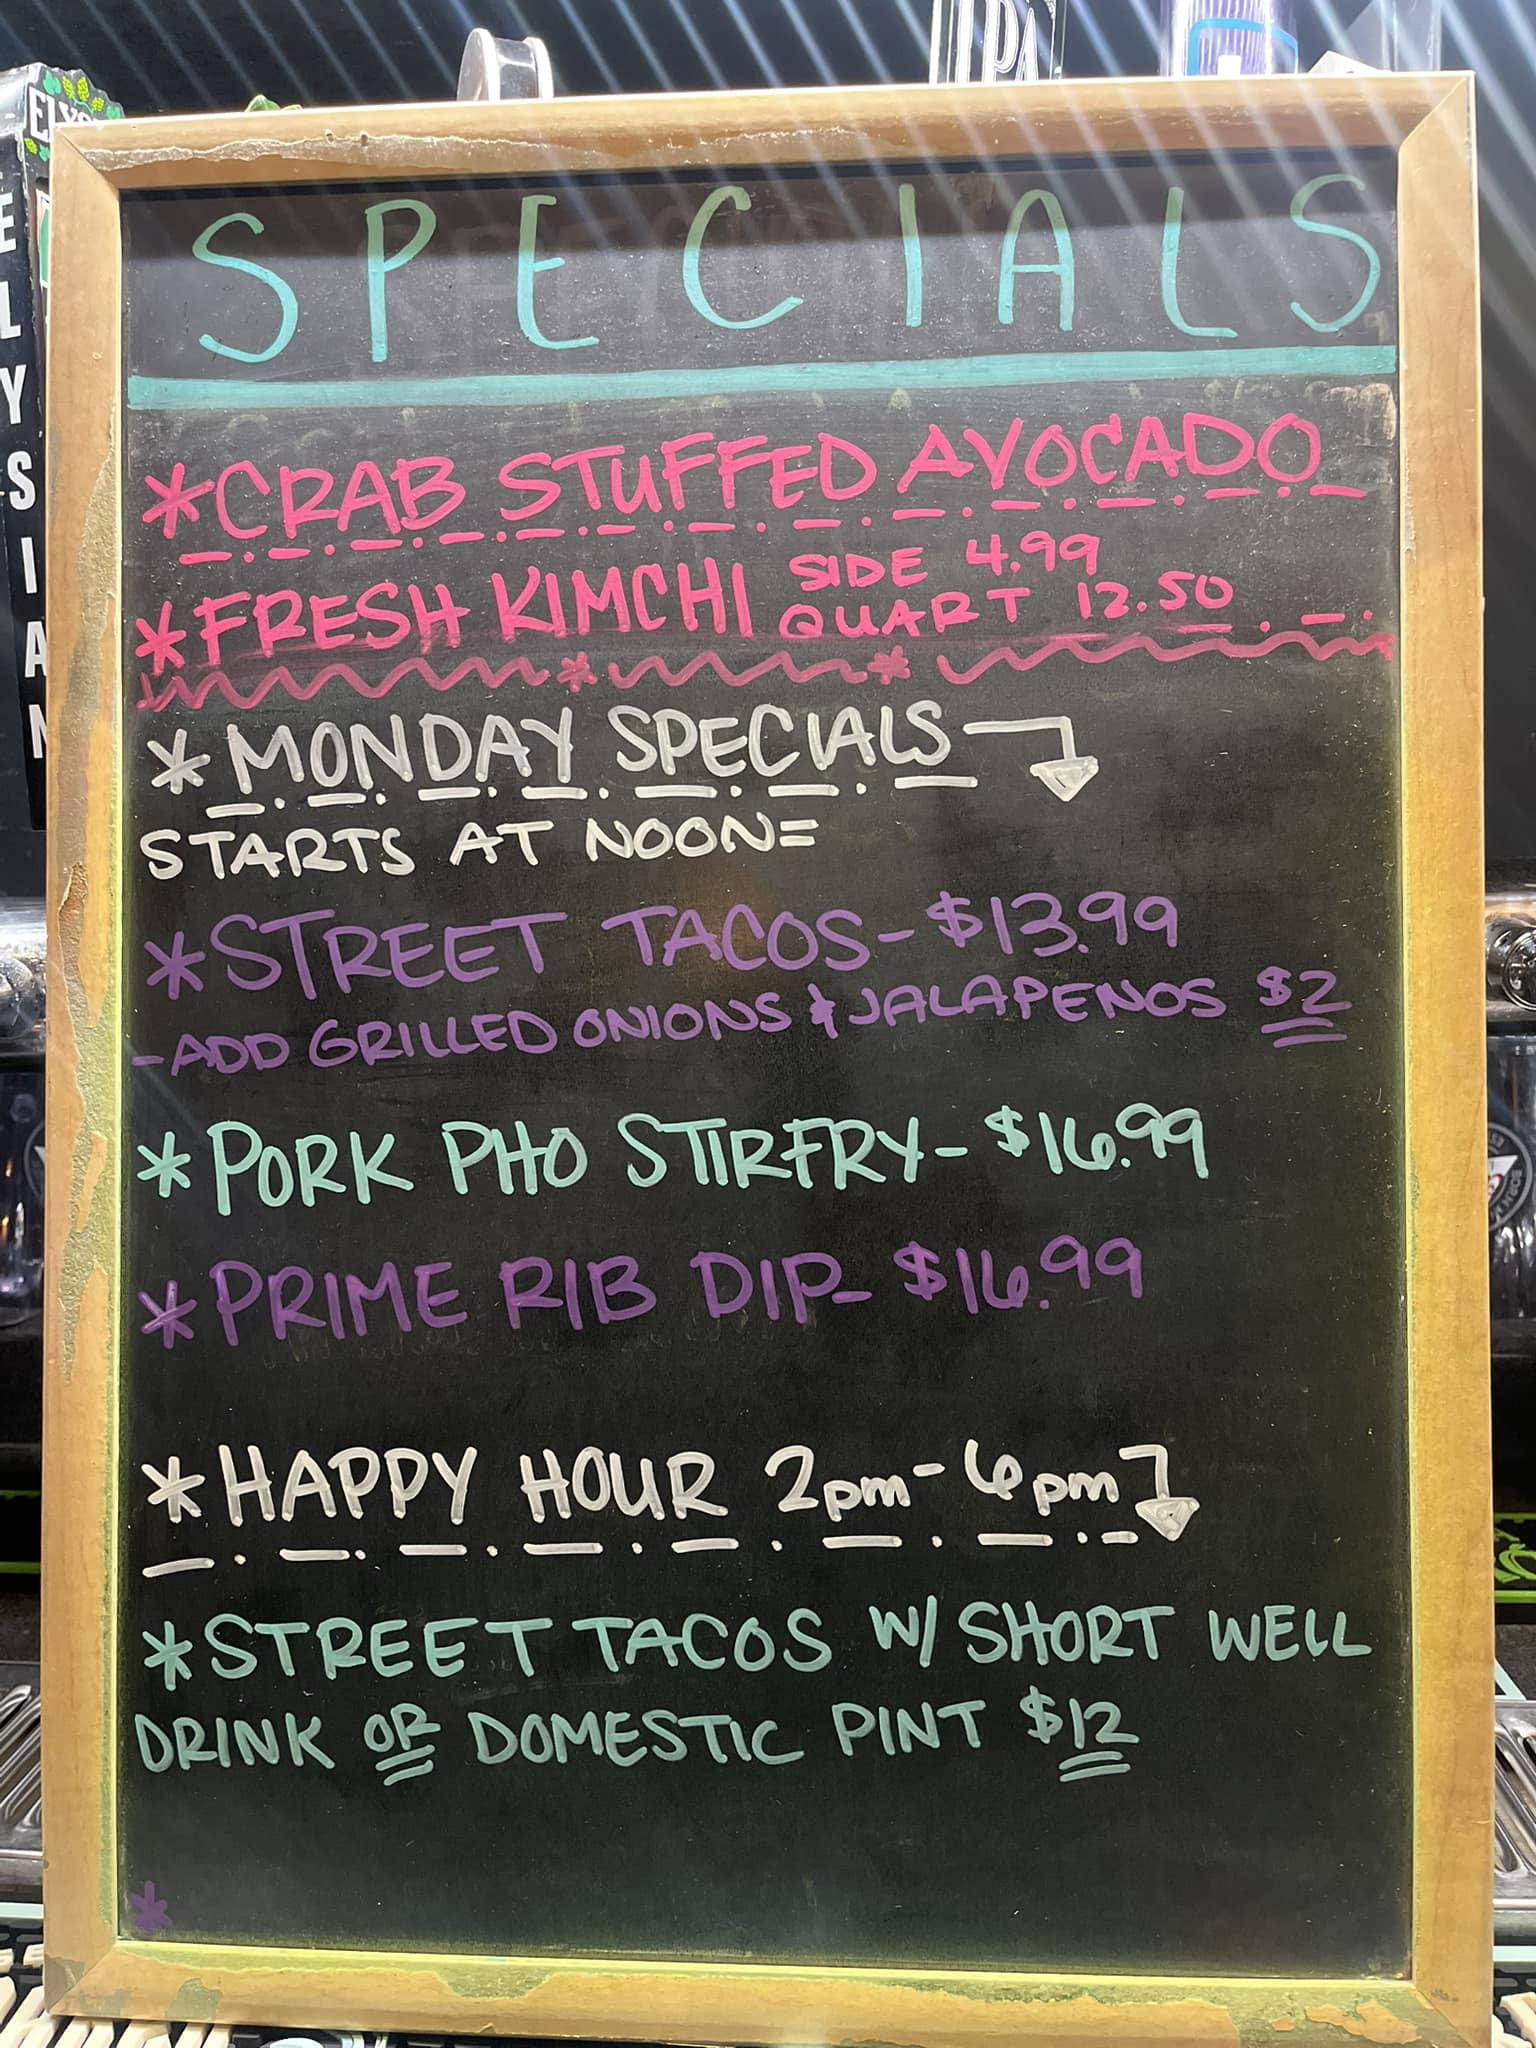 IPA
ELYS
ELYSIAN
SPECIALS
*CRAB STUFFED AVOCADO
*FRESH KIMCHI SIDE 4.99
QUART 12.50
*MONDAY SPECIALS
STARTS AT NOON=
*STREET TACOS-$13.99
-ADD GRILLED ONIONS & JALAPENOS $2
*PORK PHO STIRFRY-$16.99
*PRIME RIB DIP-$16.99
*HAPPY HOUR 2pm-6pm
*STREET TACOS W/ SHORT WELL
DRINK OR DOMESTIC PINT $12
*